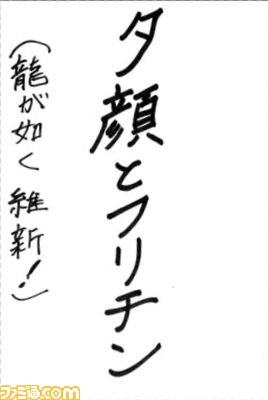 夕顔とフリチン
(龍が如く 維新!)
ファミ通.com